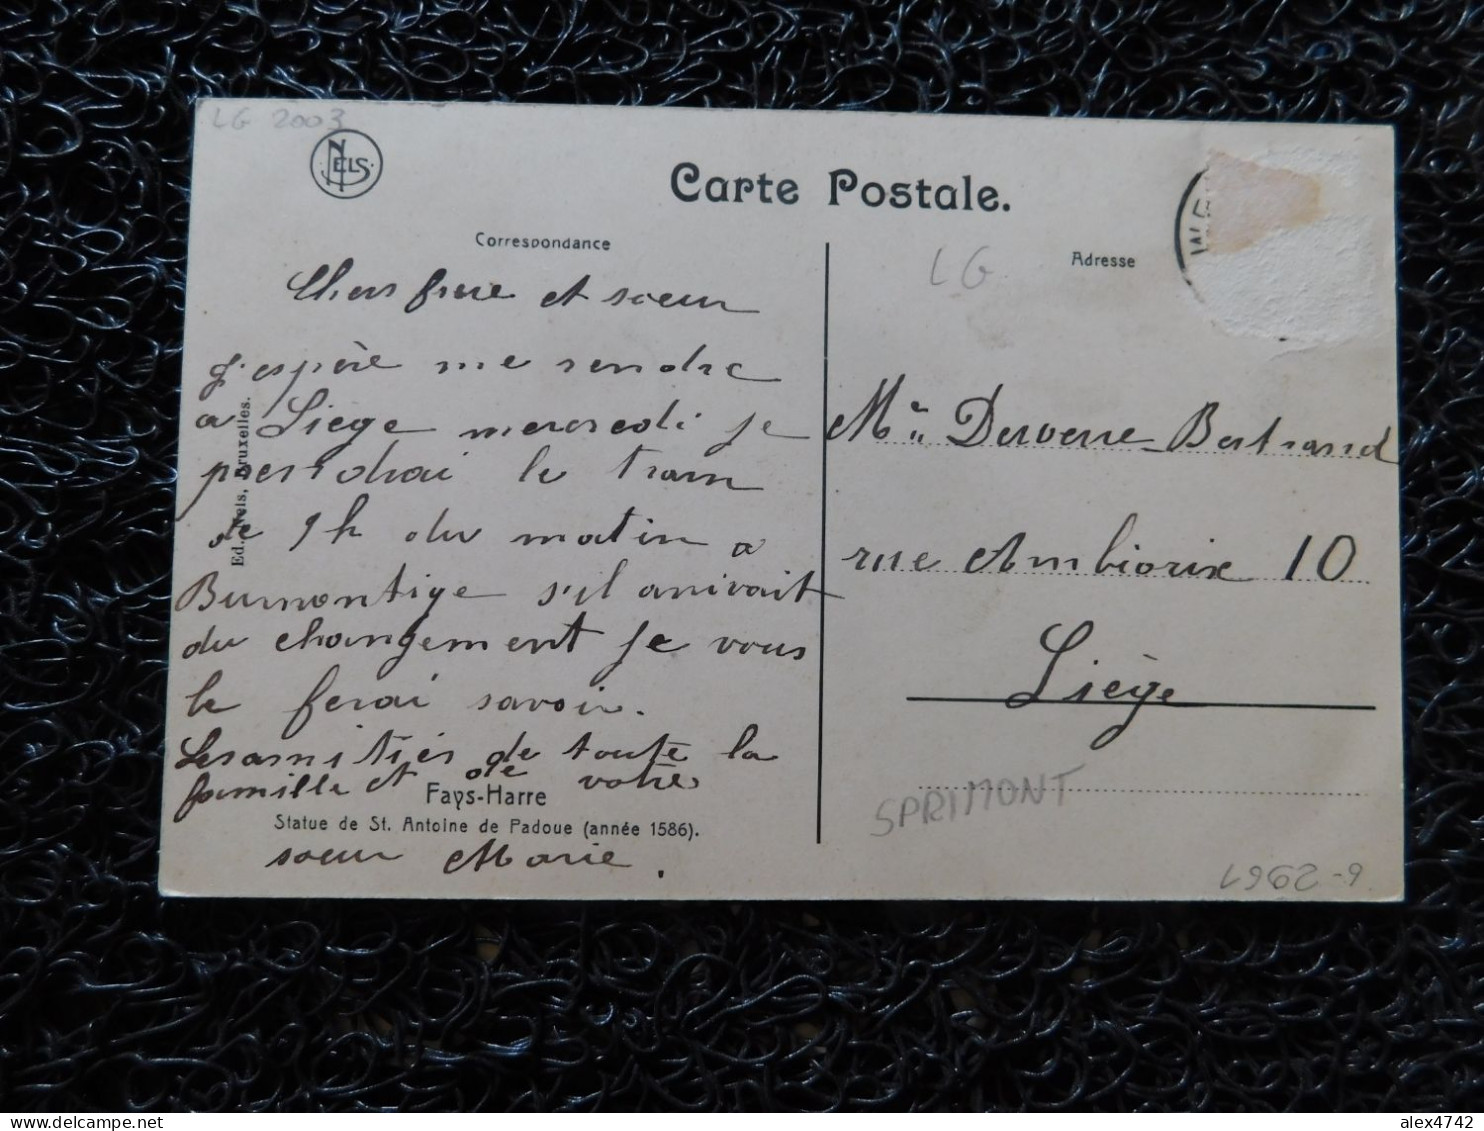 LG 2003
NELS
Carte Postale.
Correspondance
Adresse
LG
Chers frère et soeur
J'espère me rendre
a Liege mercredi je
prendrai le tram
de 9h du matin a
Burnontige s'il arrivait
du changement je vous
le ferai savoir.
Les amitiés de toute la
famille et de votre
soeur Marie.
Ed. Nels, Bruxelles.
Fays-Harre
Statue de St. Antoine de Padoue (année 1586).
Bertrand
rue Ambiorix 10
Liège
SPRIMONT
alex4742